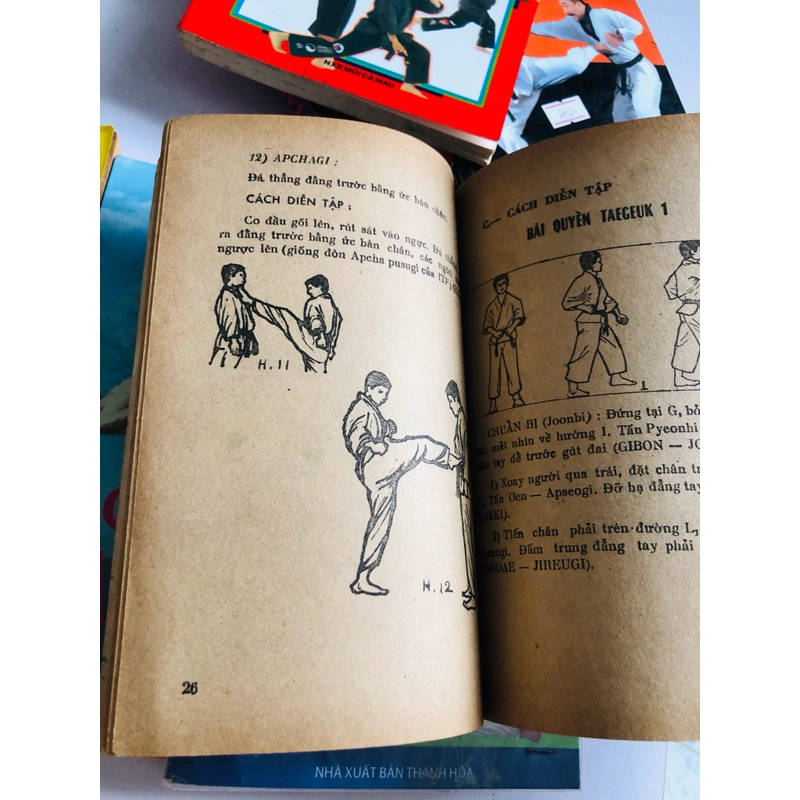 NXB MŨI CÀ MAU
40
12) APCHAGI :
Đá thẳng đằng trước bằng ức bàn chân.
CÁCH DIỄN TẬP :
Co đầu gối lên, rút sát vào ngực. Đá
ra đằng trước bằng ức bàn chân, các
ngược lên (giống đòn Apcha pusugi của ITF)
H.11
H.12
26
C— CÁCH DIỄN TẬP
BÀI QUYỀN TAEGEUK 1
1
CHUẨN BỊ (Joonbi) : Đứng tại G,
mắt nhìn về hướng 1. Tấn Pyeonhi
tay để trước gút đai (GIBON —
1) Xoay người qua trái, đặt chân
Tấn Oen — Apseogi. Đỡ hạ đẳng tay
2) Tiến chân phải trên đường L,
Đấm trung đẳng tay phải
— JIREUGI).
NHÀ XUẤT BẢN THANH HÓA